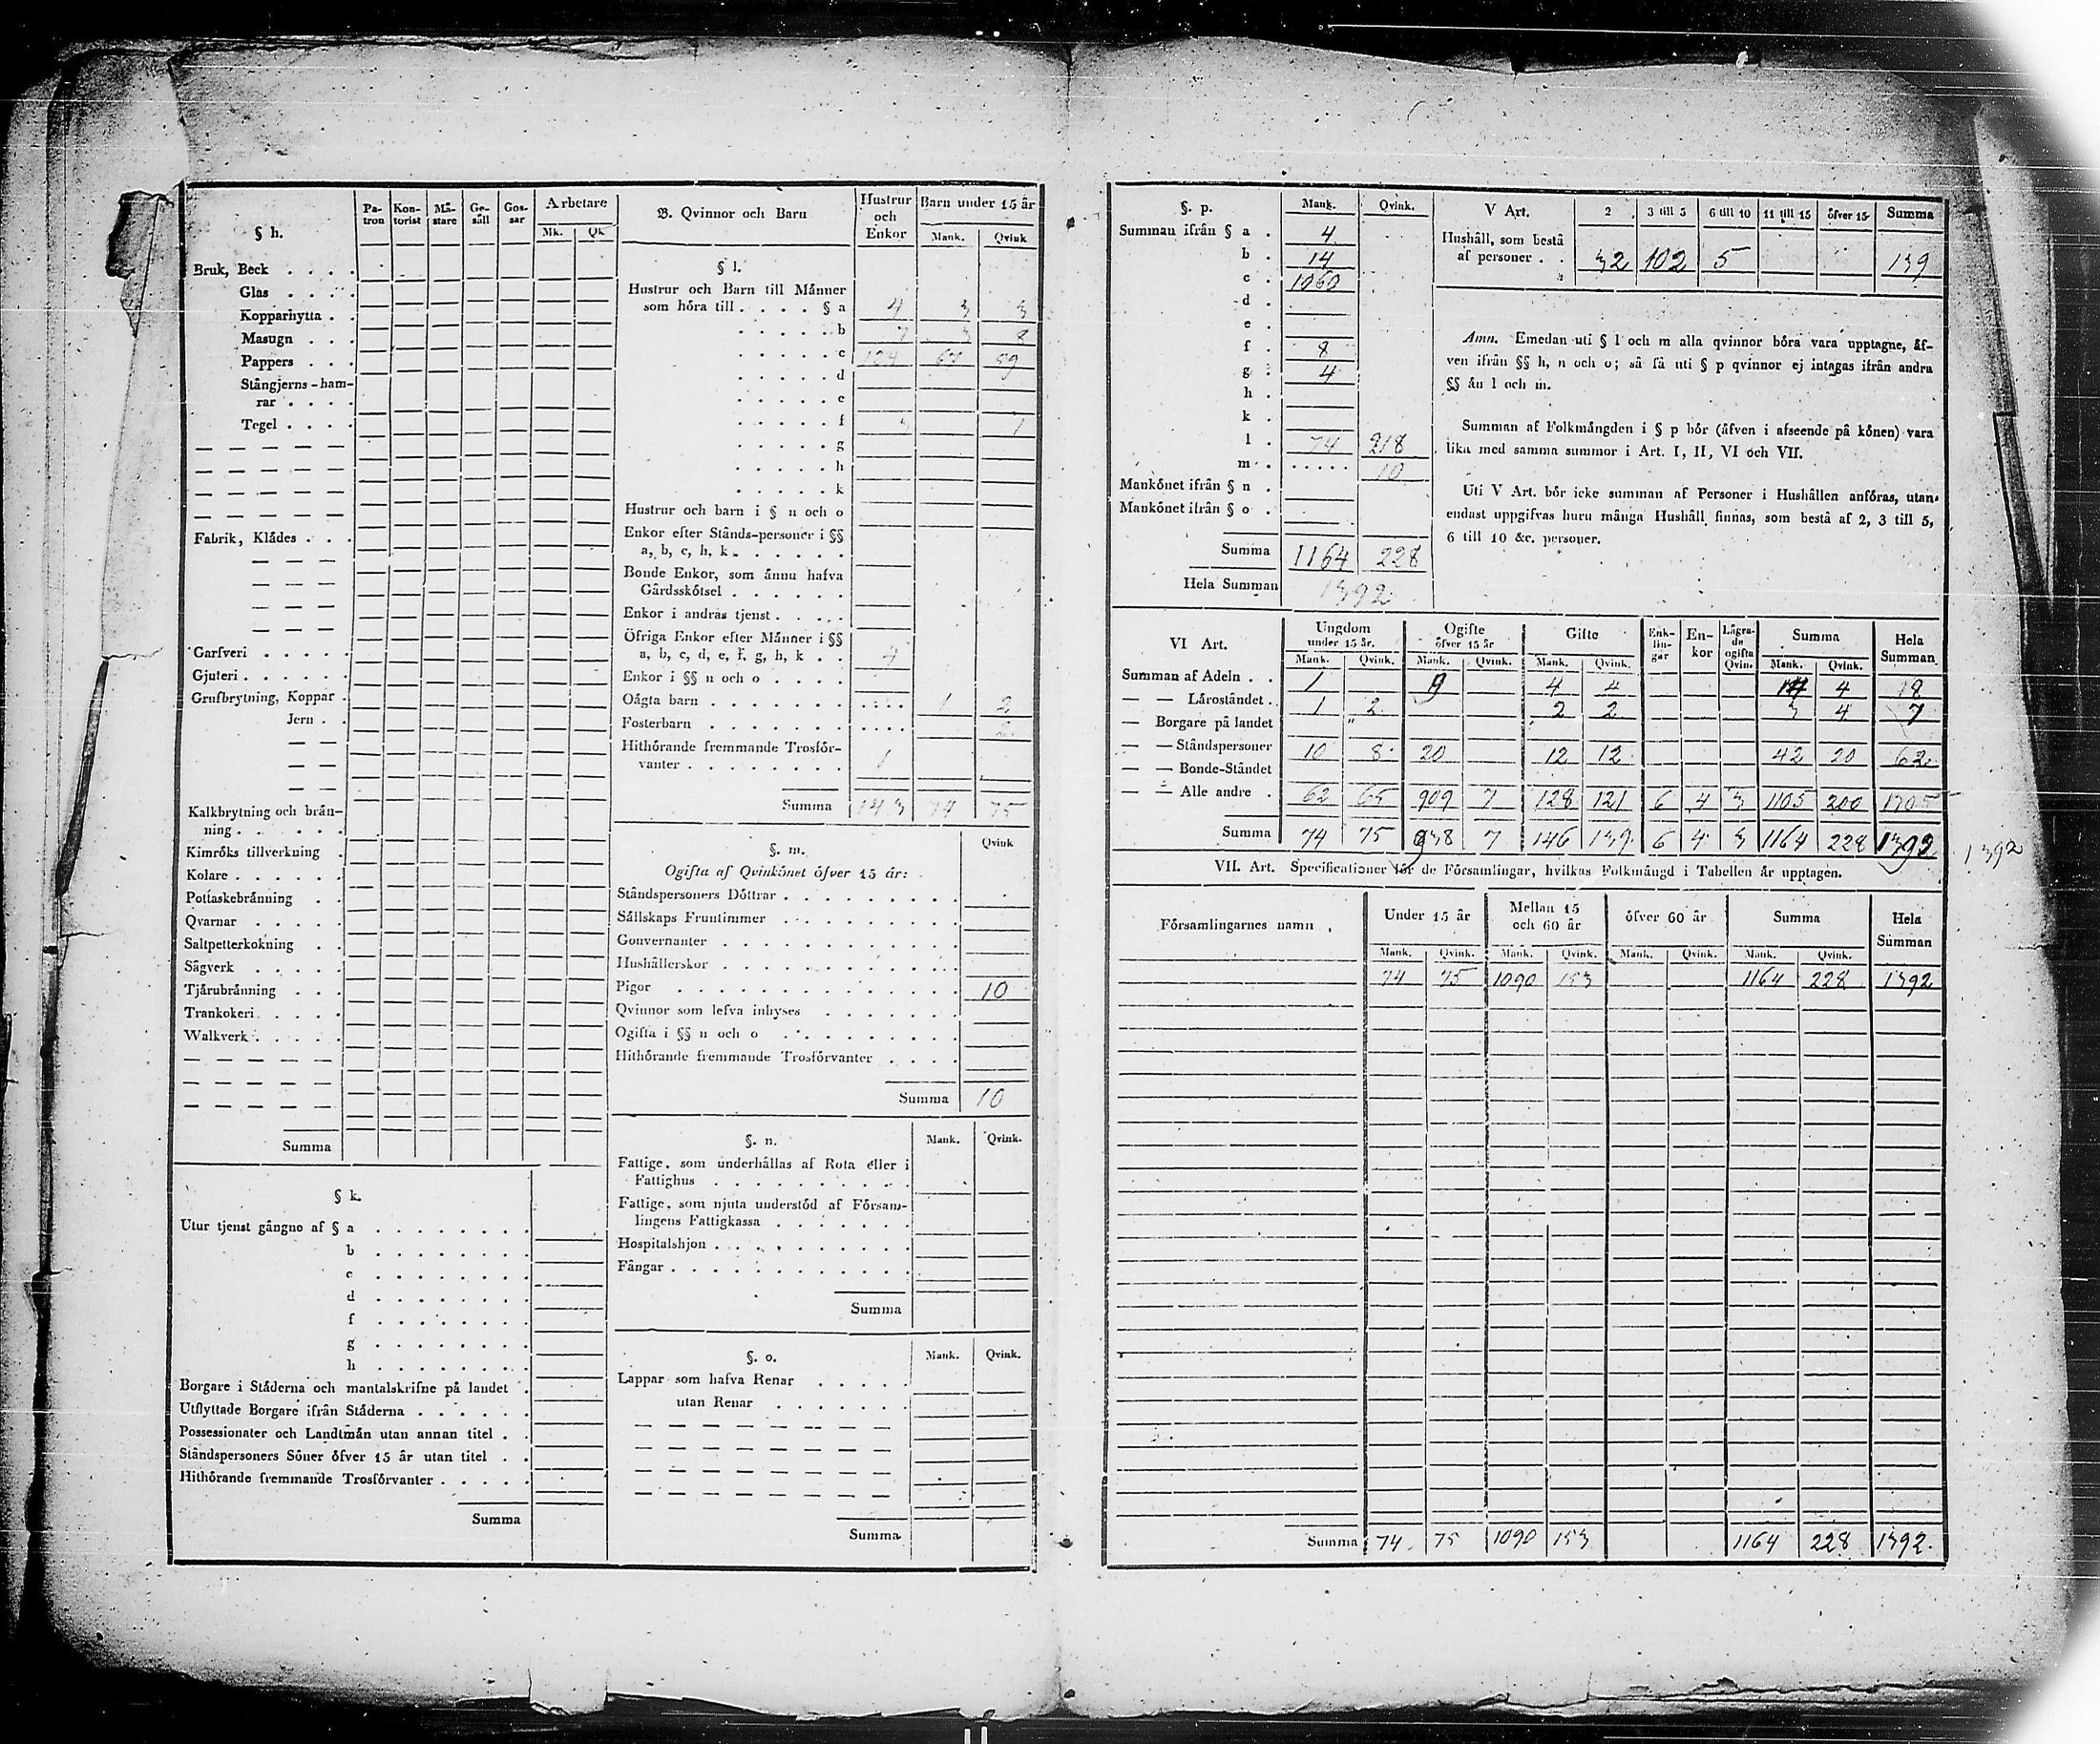 § h.
Pa-tron Kon-torist Må-stare Ge-säll Gos-sar Arbetare
Mk. Qk
Bruk, Beck . . . .
Glas . . . .
Kopparhytta . .
Masugn . . .
Pappers . . .
Stångjerns-ham-
rar . . . .
Tegel . . . .
Fabrik, Klådes . . .
Garfveri . . . . .
Gjuteri . . . . . .
Grufbrytning, Koppar .
Jern . .
Kalkbrytning och brån-
ning . . . . . .
Kimröks tillverkning .
Kolare . . . . . .
Pottaskebrånning . .
Qvarnar . . . . .
Saltpetterkokning . .
Sågverk . . . . .
Tjårubrånning . . .
Trankokeri . . . .
Walkverk . . . . .
Summa
§ k.
Utur tjenst gångne af § a . . . . . . . .
b . . . . . . . .
c . . . . . . . .
d . . . . . . . .
f . . . . . . . .
g . . . . . . . .
h . . . . . . . .
Borgare i Ståderna och mantalskrifne på landet .
Utflyttade Borgare ifrån Ståderna . . . . . .
Possessionater och Landtmån utan annan titel . .
Ståndspersoners Söner öfver 15 år utan titel . .
Hithörande fremmande Trosförvanter . . . . .
Summa
B. Qvinnor och Barn
Hustrur och Enkor Barn under 15 år
Mank. Qvink
§ l.
Hustrur och Barn till Månner
som höra till . . . . § a 4 3 3
. . . . . b 7 3 8
. . . . . c 124 67 59
. . . . . d
. . . . . e
. . . . . f 3 1
. . . . . g
. . . . . h
. . . . . k
Hustrur och barn i § n och o
Enkor efter Stånds-personer i §§
a, b, c, h, k . . . . . .
Bonde Enkor, som ånnu hafva
Gårdsskötsel . . . . . .
Enkor i andras tjenst . . . . .
Öfriga Enkor efter Månner i §§
a, b, c, d, e, f, g, h, k . . 4
Enkor i §§ n och o . . . .
Oågta barn . . . . . . . . . . . 1 2
Fosterbarn . . . . . . . . . . . 2
Hithörande fremmande Trosför-
vanter . . . . . . . . 1
Summa 143 74 75
§. m.
Qvink
Ogifta af Qvinkönet öfver 15 år:
Ståndspersoners Döttrar . . . . . . . . . .
Sållskaps Fruntimmer . . . . . . . . . .
Gouvernanter . . . . . . . . . . . . .
Hushållerskor . . . . . . . . . . . . .
Pigor . . . . . . . . . . . . . . . 10
Qvinnor som lefva inhyses . . . . . . .
Ogifta i §§ n och o . . . . . . . . .
Hithörande fremmande Trosförvanter . . . .
Summa 10
§. n.
Mank. Qvink.
Fattige, som underhållas af Rota eller i
Fattighus . . . . . . . . . .
Fattige, som njuta understöd af Försam-
lingens Fattigkassa . . . . . . .
Hospitalshjon . . . . . . . . . .
Fångar . . . . . . . . . . . . .
Summa
§. o.
Mank. Qvink.
Lappar som hafva Renar . . . . .
utan Renar . . . . . . .
Summa
§. p.
Mank. Qvink.
Summan ifrån § a . 4
b . 14
c . 1060
d .
e .
f . 8
g . 4
h .
k .
l . 74 218
m . . . . . . 10
Mankönet ifrån § n .
Mankönet ifrån § o .
Summa 1164 228
Hela Summan 1392
V Art. 2 3 till 5 6 till 10 11 till 15 öfver 15 Summa
Hushåll, som bestå
af personer . . 32 102 5 139
Anm. Emedan uti § l och m alla qvinnor böra vara upptagne, åf-
ven ifrån §§ h, n och o; så få uti § p qvinnor ej intagas ifrån andra
§§ ån l och m.
Summan af Folkmångden i § p bör (åfven i afseende på könen) vara
lika med samma summor i Art. I, II, VI och VII.
Uti V Art. bör icke summan af Personer i Hushållen anföras, utan
endast uppgifvas huru många Hushåll finnas, som bestå af 2, 3 till 5,
6 till 10 &c. personer.
VI Art. Ungdom under 15 år. Ogifte öfver 15 år Gifte Enk-lin-gar En-kor Lågra-de ogifta Qvin. Summa Hela Summan
Mank. Qvink. Mank. Qvink. Mank. Qvink. Mank. Qvink.
Summan af Adeln . . 1 9 4 4 14 4 18
— — Låroståndet . 1 2 2 2 3 4 7
— Borgare på landet
— — Ståndspersoner 10 8 20 12 12 42 20 62
— — Bonde-Ståndet
— — Alle andre . 62 65 909 7 128 121 6 4 3 1105 200 1305
Summa 74 75 938 7 146 139 6 4 3 1164 228 1392
1392
VII. Art. Specificationer för de Församlingar, hvilkas Folkmångd i Tabellen år upptagen.
Församlingarnes namn . Under 15 år Mellan 15 och 60 år öfver 60 år Summa Hela Summan
Mank. Qvink. Mank. Qvink. Mank. Qvink. Mank. Qvink.
74 75 1090 153 1164 228 1392
Summa 74 75 1090 153 1164 228 1392